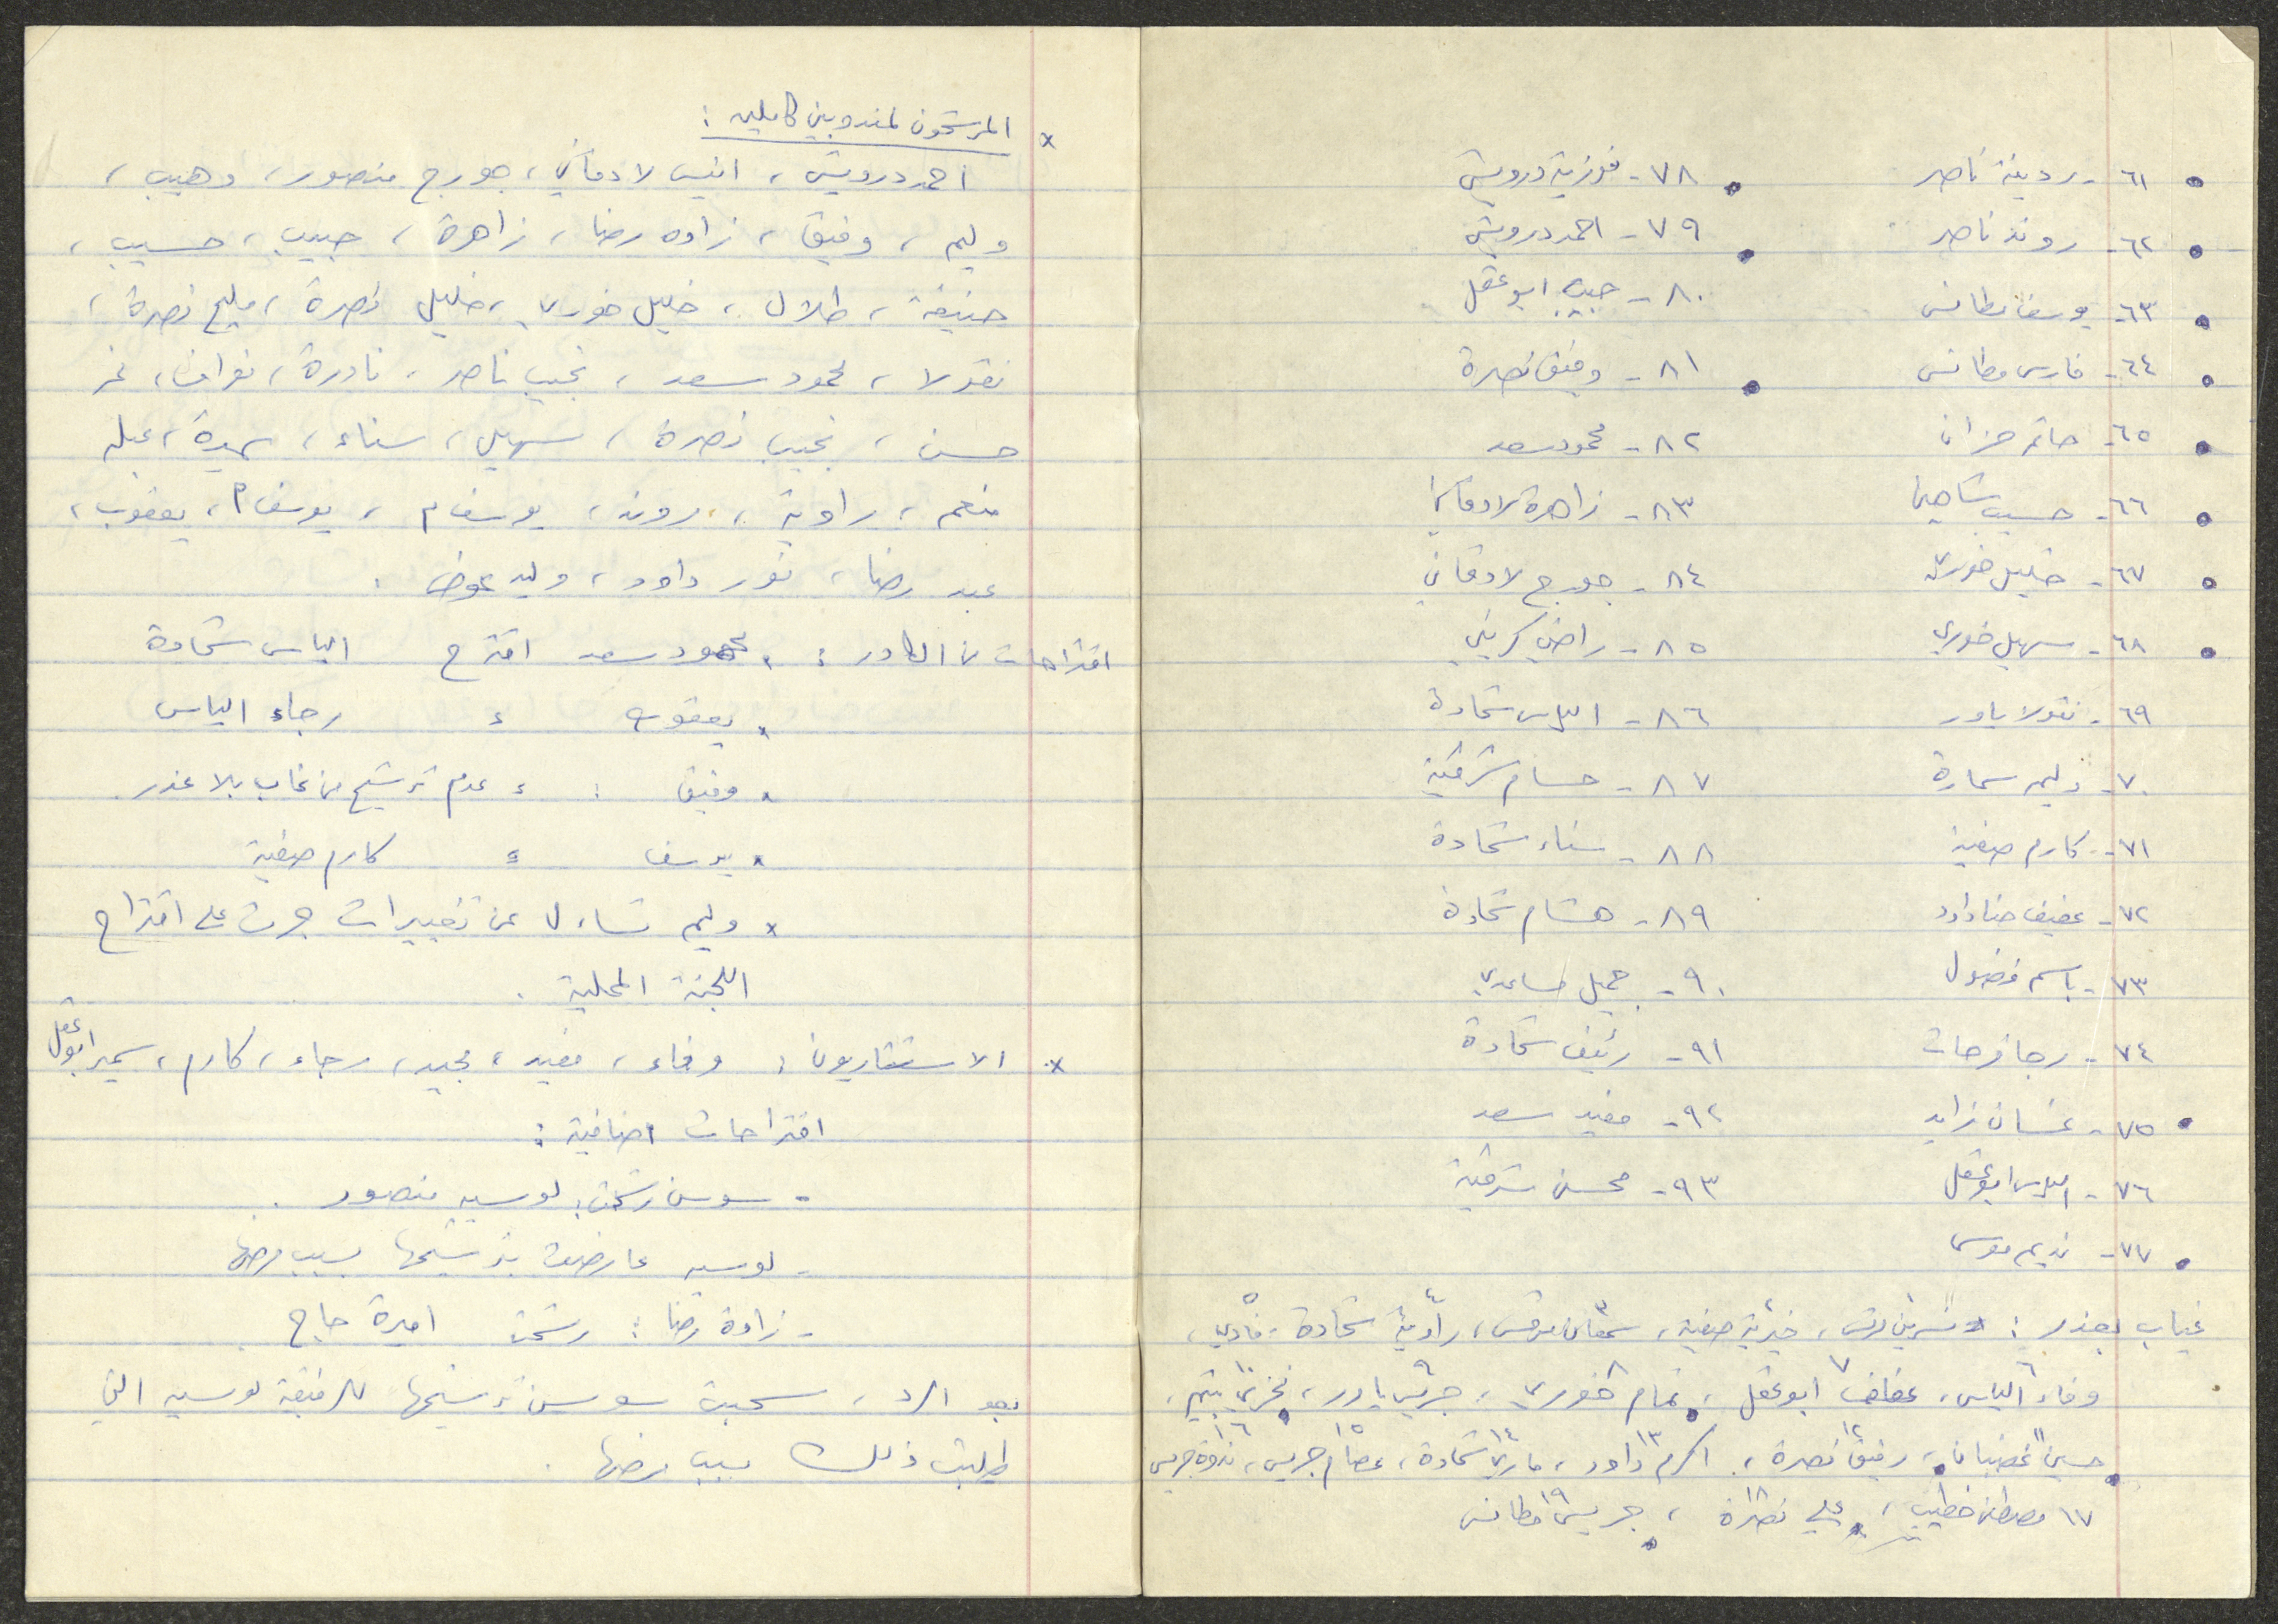 ٦١- ردينة ناصر
٦٢- روند ناصر
٦٣- يوسف مطانس
٦٤- فارس مطانس
٦٥- حاتم حزان
٦٦- حسيب شاهين
٦٧- خليل خوري
٦٨- سهيل خوري
٦٩- نقولا ياور
٧٠- وليم سمارة
٧١- كارم صفية
٧٢- عفيف حنا داود
٧٣- باسم فضول
٧٤- رجا فرحات
٧٥- غسان زايد
٧٦- الياس ابو عقل
٧٧- نديم موسى
٧٨- فوزية درويش
٧٩- احمد درويش
٨٠- حبيب ابو عقل
٨١- وفيق نصرة
٨٢- محمود سعد
٨٣- زاهرة لادقاني
٨٤- جورج لادقاني
٨٥- راضي كريني
٨٦- الياس شحادة
٨٧- حسام شرقية
٨٨- سناء شحادة
٨٩- هشام شحادة
٩٠- جميل ساعدي
٩١- رئيف شحادة
٩٢- مفيد سعد
٩٣- محسن شرقية
غياب بعذر: نسرين مرقس، خيرية صفية، سمعان مرقس، راوية شحادة، فادي،
وفاء الياس، عفاف ابو عقل، تمام خوري، جريس ياور، فخري يتيم،
حسين غضبان، رفيق نصرة، اكرم داود، ماري شحادة، عصام جريس، ندوة جريس
١٧ مصطفى خطيب، علي نصرة، جريس مطانس
* المرشحون لمندوبين كاملين:
احمد درويش، انيس لادقاني، جورج منصور، وهيب،
وليم، وفيق، زاده رضا، زاهرة، حبيب، حسيب،
حنيفة، طلال، خليل خوري، خليل نصرة، مليح نصرة،
نقولا، محمود سعد، نجيب ناصر، نادرة، نواف، نمر
حسن، نجيب نصرة، سهيل، سناء، سميرة، عبله
منعم، راوية، روند، يوسف م، يوسف م، يعقوب،
عبد رضا، نور داود، وليد عوض.
اقتراحات من الكادر: * محمود سعد اقترح الياس شحادة
* يعقوب " رجاء الياس
* وفيق: " عدم ترشيح من غاب بلا عذر.
* يوسف " كارم صفية
* وليم تساءل عن تغييرات جرت على اقتراح
اللجنة المحلية.
* الاستشاريون: وفاء، مفيد، مجيد، رجاء، كارم، سمير ابو عقل
اقتراحات اضافية:
- سوسن رشحت: لوسيه منصور.
- لوسيه عارضت بترشيحها بسبب مرضها
- زادة رضا: رشحت اميرة حاج
بعد الرد، سحبت سوسن ترشيحها للرفيقة لوسيه التي
طلبت ذلك بسبب مرضها.